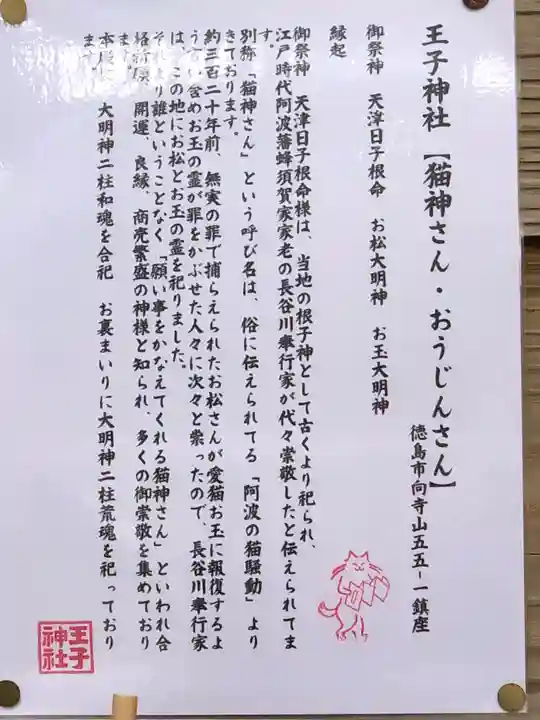 王子神社【猫神さん・おうじんさん】
徳島市向寺山五五-一鎮座
御祭神 天津日子根命 お松大明神 お玉大明神
縁起
御祭神 天津日子根命様は、当地の根子神として古くより祀られ、
江戸時代阿波藩蜂須賀家家老の長谷川奉行家が代々崇敬したと伝えられてま
す。
別称「猫神さん」という呼び名は、俗に伝えられてる「阿波の猫騒動」より
きております。
約三百二十年前、無実の罪で捕らえられたお松さんが愛猫お玉に報復するよ
う言い含めお玉の霊が罪をかぶせた人々に次々と祟ったので、長谷川奉行家
は、この地にお松とお玉の霊を祀りました。
それより誰ということなく「願い事をかなえてくれる猫神さん」といわれ合
格祈願、開運、良縁、商売繁盛の神様と知られ、多くの御崇敬を集めており
ます。
本殿に 大明神二柱和魂を合祀 お裏まいりに大明神二柱荒魂を祀っており
ます。
王子神社